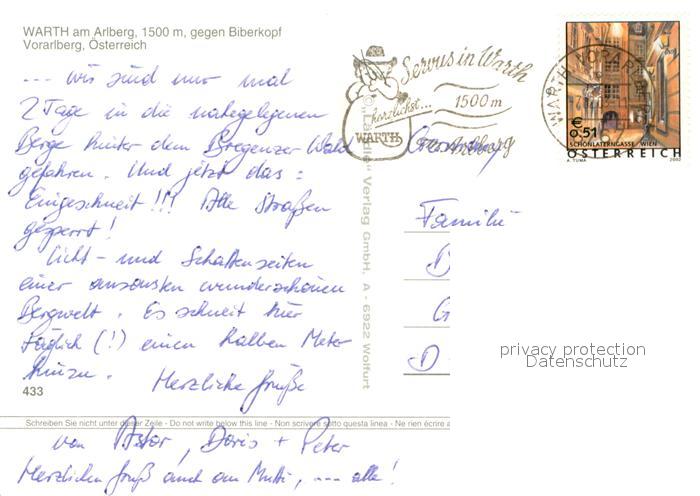 WARTH am Arlberg, 1500 m, gegen Biberkopf
Vorarlberg, Österreich
... wir sind nur mal
2 Tage in die nahegelegenen
Berge hinter dem Bregenzer Wald
gefahren. Und jetzt das:
Eingeschneit!!! Alle Straßen
gesperrt!
Licht- und Schattenseiten
einer ansonsten wunderschönen
Bergwelt. Es schneit hier
täglich (!) einen halben Meter
hinzu. Herzliche Grüße
433
Schreiben Sie nicht unter dieser Zeile - Do not write below this line - Non scrivere sotto questa linea - Ne rien écrire a
von Astor, Doris + Peter
Herzlichen Gruß auch an Mutti, ... alle!
Verlag GmbH, A - 6922 Wolfurt
Servus in Warth
herzlichst...
1500 m
WARTH
am Arlberg
WARTH VORARLBERG
€
0,51
SCHÖNLATERNGASSE, WIEN
ÖSTERREICH
A. TUMA
2002
Familie
D
G
D
privacy protection
Datenschutz